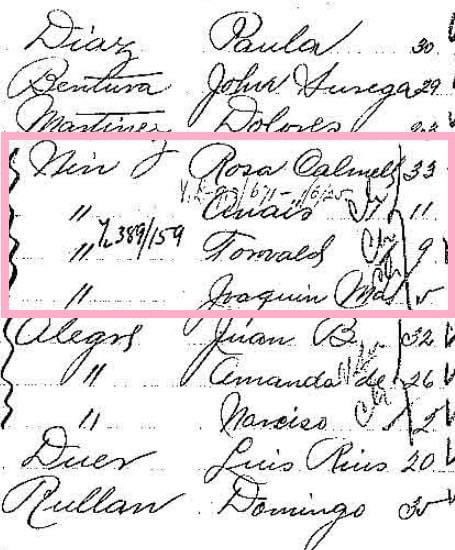 Diaz Paula 30
Bentura John Surega 29
Martinez Dolores
Nin y Rosa Calmell 33
" Anais 11
" Y.389/159 Torvald 9
" Joaquin Ma 5
Alegre Juan B. 32
" Amanda de 26
" Narciso 2
Duer Luis Rius 20
Rullan Domingo